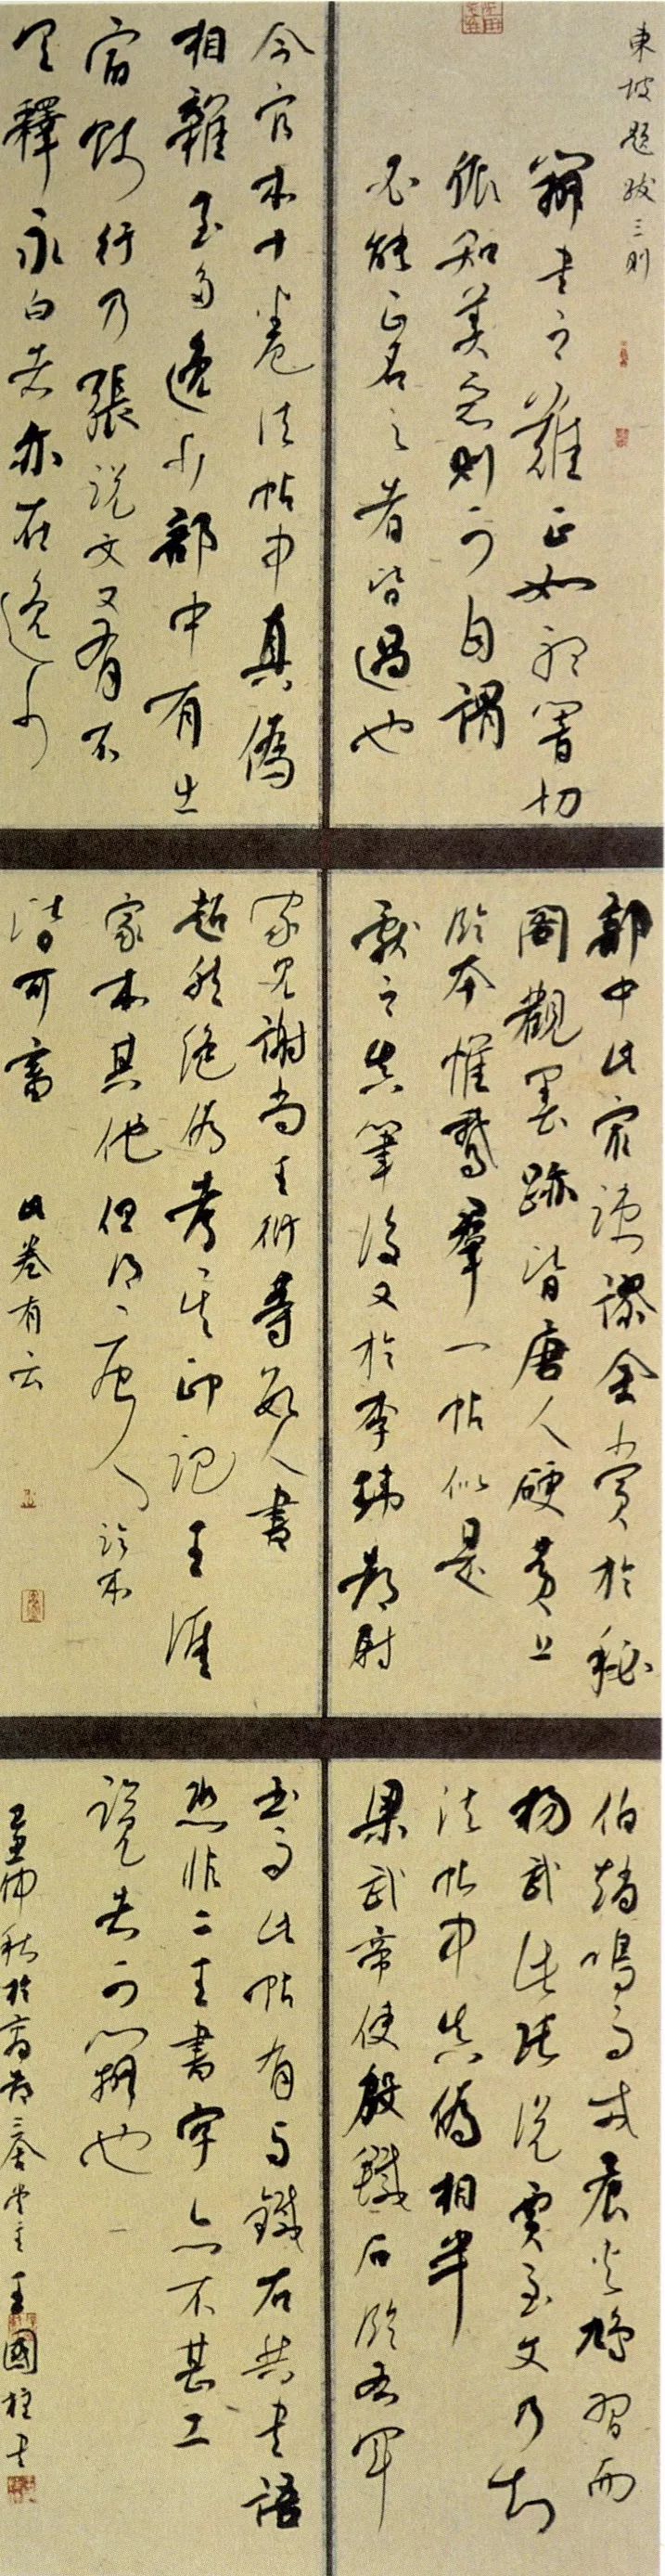 東坡題跋三則
辨書之難正如聽響切
脈知其美惡則可自謂
必能正名之者皆過也
今官本十卷法帖中真偽
相雜至多逸少部中有出
宿餞行乃張說文又有不
具釋永白者亦在逸少
部中此最疏謬余嘗於秘
閣觀墨跡皆唐人硬黃上
臨本惟鵞羣一帖似是
獻之真筆後又於李瑋都尉
家見謝尚王衍等數人書
超然絕俗考其印記王涯
家本其他但得唐人臨本
皆可畜 此卷有云
伯趙鳴而戒晨爽鳩習而
揚武此張說賈至文乃知
法帖中真偽相半
梁武帝使殷鐵石臨右軍
書而此帖有与鐵石共書語
恐非二王書字亦不甚工
覽者可辨也
仲秋於商都三秦堂主王國柱書